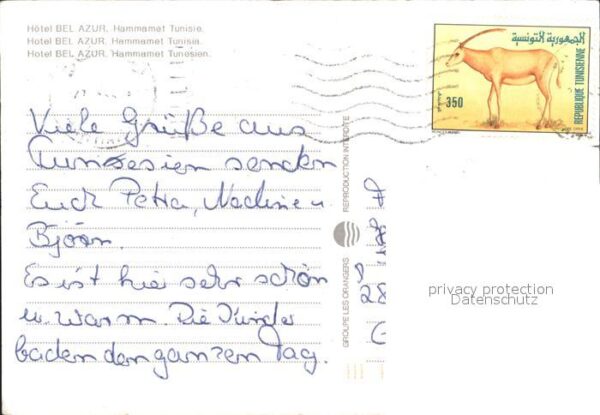 Hôtel BEL AZUR. Hammamet Tunisie.
Hotel BEL AZUR. Hammamet Tunisia.
Hotel BEL AZUR. Hammamet Tunesien.
الجمهورية التونسية
REPUBLIQUE TUNISIENNE
350
Viele Grüße aus
Tunesien senden
Euch Petra, Nadine u.
Björn.
Es ist hier sehr schön
u. warm. Die Kinder
baden den ganzen Tag.
GROUPE LES ORANGERS
REPRODUCTION INTERDITE
28
privacy protection
Datenschutz